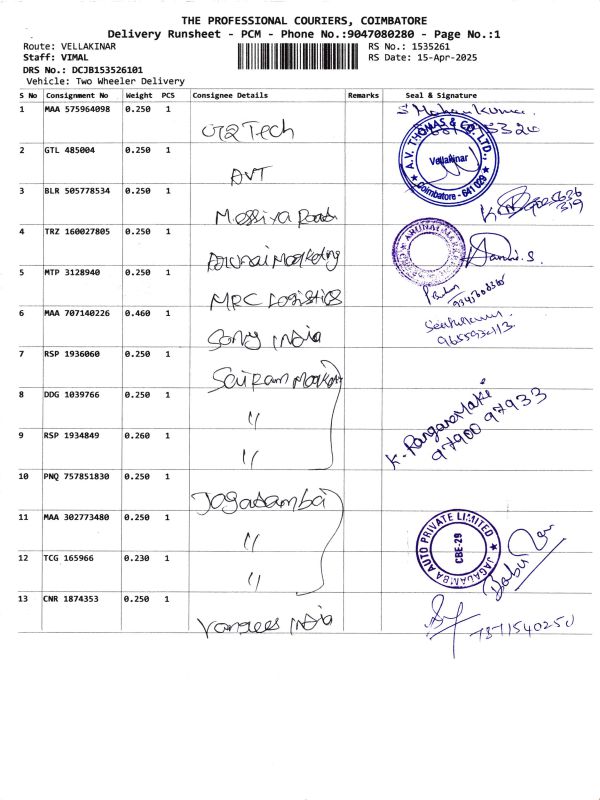 THE PROFESSIONAL COURIERS, COIMBATORE
Delivery Runsheet - PCM - Phone No.:9047080280 - Page No.:1
Route: VELLAKINAR
RS No.: 1535261
Staff: VIMAL
RS Date: 15-Apr-2025
DRS No.: DCJB153526101
Vehicle: Two Wheeler Delivery
S No Consignment No Weight PCS Consignee Details Remarks Seal & Signature
1 MAA 575964098 0.250 1
Tech
A.V. THOMAS & CO. LTD.,
Vellakinar
Coimbatore - 641 029
2 GTL 485004 0.250 1 AVT
3 BLR 505778534 0.250 1 Messiya Road
4 TRZ 160027805 0.250 1 Arunai Marketing
5 MTP 3128940 0.250 1 MRC Logistics
6 MAA 707140226 0.460 1 Sony India
7 RSP 1936060 0.250 1 Sairam Marketing
8 DDG 1039766 0.250 1 "
K. Rangaramake
97900 97933
9 RSP 1934849 0.260 1 "
10 PNQ 757851830 0.250 1 Jagadamba
11 MAA 302773480 0.250 1 "
JAGADAMBA AUTO PRIVATE LIMITED
CBE-29
Babu
12 TCG 165966 0.230 1 "
13 CNR 1874353 0.250 1 India
7371540250